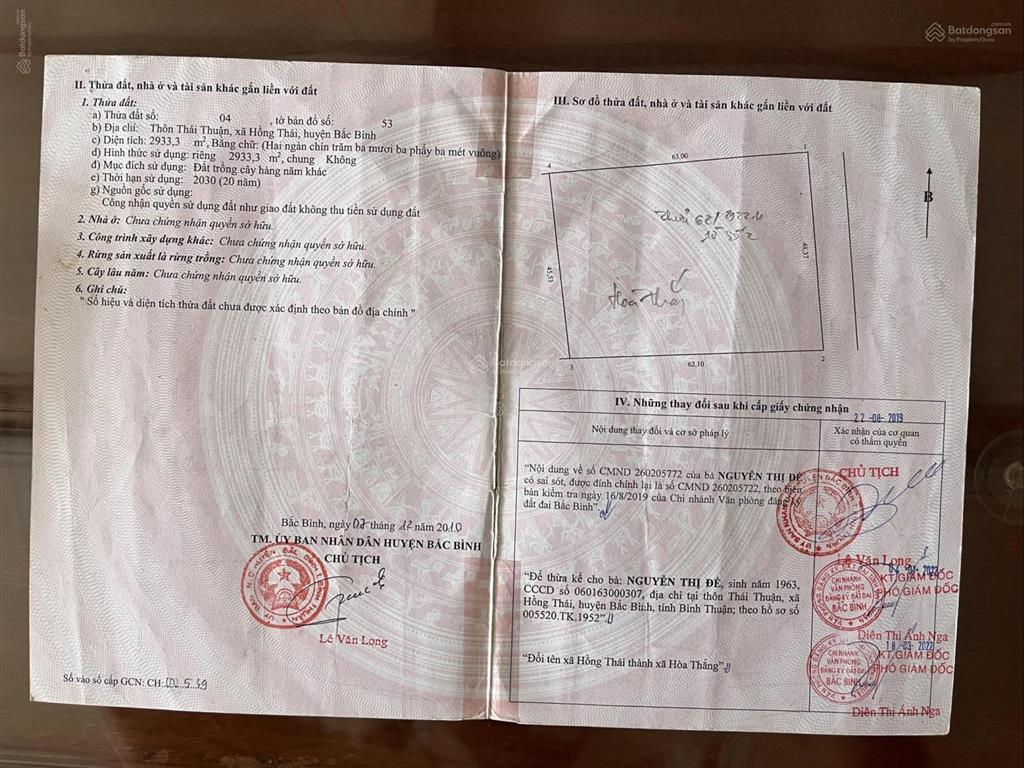 Batdongsan
by PropertyGuru
Batdongsan.com.vn
by PropertyGuru
II. Thửa đất, nhà ở và tài sản khác gắn liền với đất
1. Thửa đất:
a) Thửa đất số: 04 , tờ bản đồ số: 53
b) Địa chỉ: Thôn Thái Thuận, xã Hồng Thái, huyện Bắc Bình
c) Diện tích: 2933,3 m², Bằng chữ: (Hai ngàn chín trăm ba mươi ba phẩy ba mét vuông)
d) Hình thức sử dụng: riêng 2933,3 m², chung Không
đ) Mục đích sử dụng: Đất trồng cây hàng năm khác
e) Thời hạn sử dụng: 2030 (20 năm)
g) Nguồn gốc sử dụng:
Công nhận quyền sử dụng đất như giao đất không thu tiền sử dụng đất
2. Nhà ở: Chưa chứng nhận quyền sở hữu.
3. Công trình xây dựng khác: Chưa chứng nhận quyền sở hữu.
4. Rừng sản xuất là rừng trồng: Chưa chứng nhận quyền sở hữu.
5. Cây lâu năm: Chưa chứng nhận quyền sở hữu.
6. Ghi chú:
" Số hiệu và diện tích thửa đất chưa được xác định theo bản đồ địa chính "
Bắc Bình, ngày 07 tháng 12 năm 2010
TM. ỦY BAN NHÂN DÂN HUYỆN BẮC BÌNH
CHỦ TỊCH
Lê Văn Long
Số vào sổ cấp GCN: CH:
III. Sơ đồ thửa đất, nhà ở và tài sản khác gắn liền với đất
4
63,00
1
B
45,53
48,37
Hoà Thắng
3
62,10
2
Batdongsan
by PropertyGuru
IV. Những thay đổi sau khi cấp giấy chứng nhận
Nội dung thay đổi và cơ sở pháp lý
22-08-2019
Xác nhận của cơ quan
có thẩm quyền
"Nội dung về số CMND 260205772 của bà NGUYỄN THỊ ĐÊ
có sai sót, được đính chính lại là số CMND 260205722, theo biên
bản kiểm tra ngày 16/8/2019 của Chi nhánh Văn phòng đăng ký
đất đai Bắc Bình".
CHỦ TỊCH
Lê Văn Long
"Để thừa kế cho bà: NGUYỄN THỊ ĐÊ, sinh năm 1963,
CCCD số 060163000307, địa chỉ tại thôn Thái Thuận, xã
Hồng Thái, huyện Bắc Bình, tỉnh Bình Thuận; theo hồ sơ số
005520.TK.1952"
KT.GIÁM ĐỐC
PHÓ GIÁM ĐỐC
CHI NHÁNH
VĂN PHÒNG
ĐĂNG KÝ ĐẤT ĐAI
BẮC BÌNH
Diên Thị Ánh Nga
"Đổi tên xã Hồng Thái thành xã Hòa Thắng"
18-03-2022
KT.GIÁM ĐỐC
PHÓ GIÁM ĐỐC
CHI NHÁNH
VĂN PHÒNG
ĐĂNG KÝ ĐẤT ĐAI
BẮC BÌNH
Diên Thị Ánh Nga